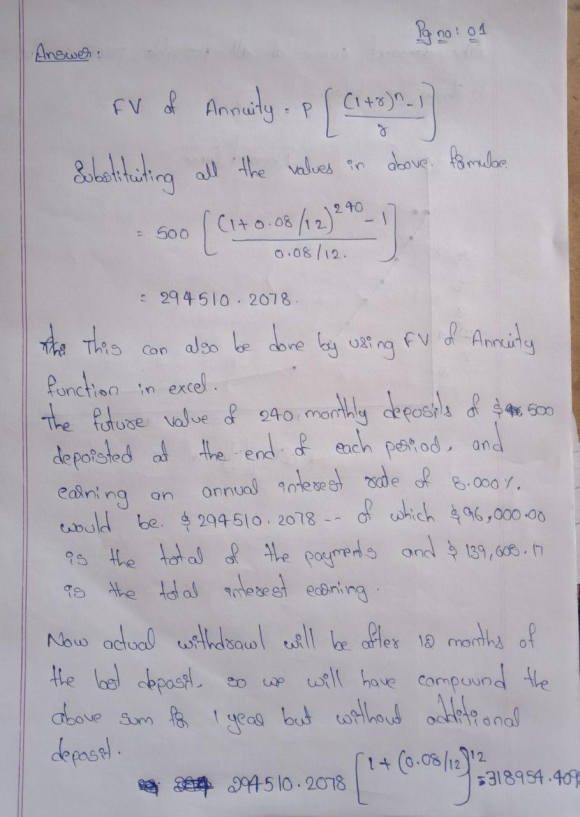 Pg no: 01
Answer:
FV of Annuity = P [ ((1+r)^n - 1) / r ]
Substituting all the values in above formulae
= 500 [ ((1+0.08/12)^240 - 1) / 0.08/12. ]
= 294510.2078.
This can also be done by using FV of Annuity
function in excel.
The future value of 240 monthly deposits of $ 500
depoisted at the end of each period, and
earning an annual interest rate of 8.000%.
would be $ 294510.2078 -- of which $ 96,000.00
is the total of the payments and $ 139,608.17
is the total interest earning.
Now actual withdrawl will be after 12 months of
the last deposit. so we will have compound the
above sum for 1 year but without additional
deposit.
294510.2078 [1+(0.08/12)]^12 = 318954.409